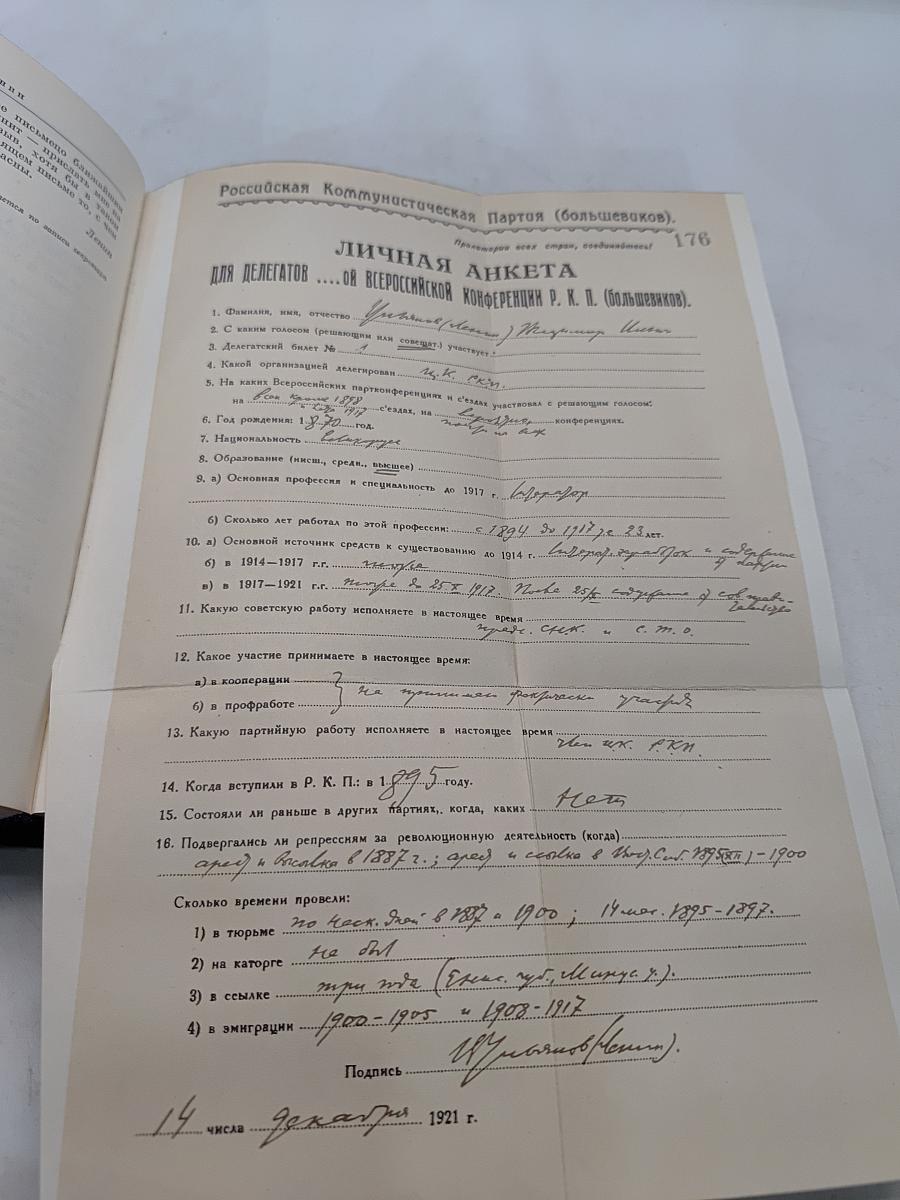 нин
е письмецо ближайшим
нит — прислать мне на
зыв, хотя бы в таком
ящем письме то, с чем
асны.
Ленин
ается по записи секретаря
Российская Коммунистическая Партия (большевиков).
Пролетарии всех стран, соединяйтесь! 176
ЛИЧНАЯ АНКЕТА
ДЛЯ ДЕЛЕГАТОВ ....ОЙ ВСЕРОССИЙСКОЙ КОНФЕРЕНЦИИ Р. К. П. (большевиков).
1. Фамилия, имя, отчество Ульянов (Ленин) Владимир Ильич
2. С каким голосом (решающим или совещат.) участвует:
3. Делегатский билет № 1
4. Какой организацией делегирован Ц.К. РКП.
5. На каких Всероссийских партконференциях и с'ездах участвовал с решающим голосом:
на всех кроме 1898 и 1917 с'ездах, на конференциях.
6. Год рождения: 1870 год.
7. Национальность великорусс
8. Образование (нисш., средн., высшее)
9. а) Основная профессия и специальность до 1917 г. литератор
б) Сколько лет работал по этой профессии: с 1894 до 1917, т.е. 23 лет.
10. а) Основной источник средств к существованию до 1914 г. литерат. заработок и содержание от партии
б) в 1914—1917 г.г. тоже
в) в 1917—1921 г.г. тоже до 25 X 1917. После 25/X содержание от сов. прави-
тельства
11. Какую советскую работу исполняете в настоящее время
пред. СНК. и С.Т.О.
12. Какое участие принимаете в настоящее время:
а) в кооперации
б) в профработе } не принимаю фактически участия
13. Какую партийную работу исполняете в настоящее время
член ЦК. РКП.
14. Когда вступили в Р. К. П.: в 1895 году.
15. Состояли ли раньше в других партиях, когда, каких Нет
16. Подвергались ли репрессиям за революционную деятельность (когда)
арест и высылка в 1887 г.; арест и ссылка в Вост. Сиб. 1895 (XII) – 1900
Сколько времени провели:
1) в тюрьме по неск. дней в 1887 и 1900; 14 мес. 1895–1897.
2) на каторге не был
3) в ссылке три года (Енис. губ., Минус. у.).
4) в эмиграции 1900–1905 и 1908–1917
Подпись В Ульянов (Ленин).
14 числа декабря 1921 г.